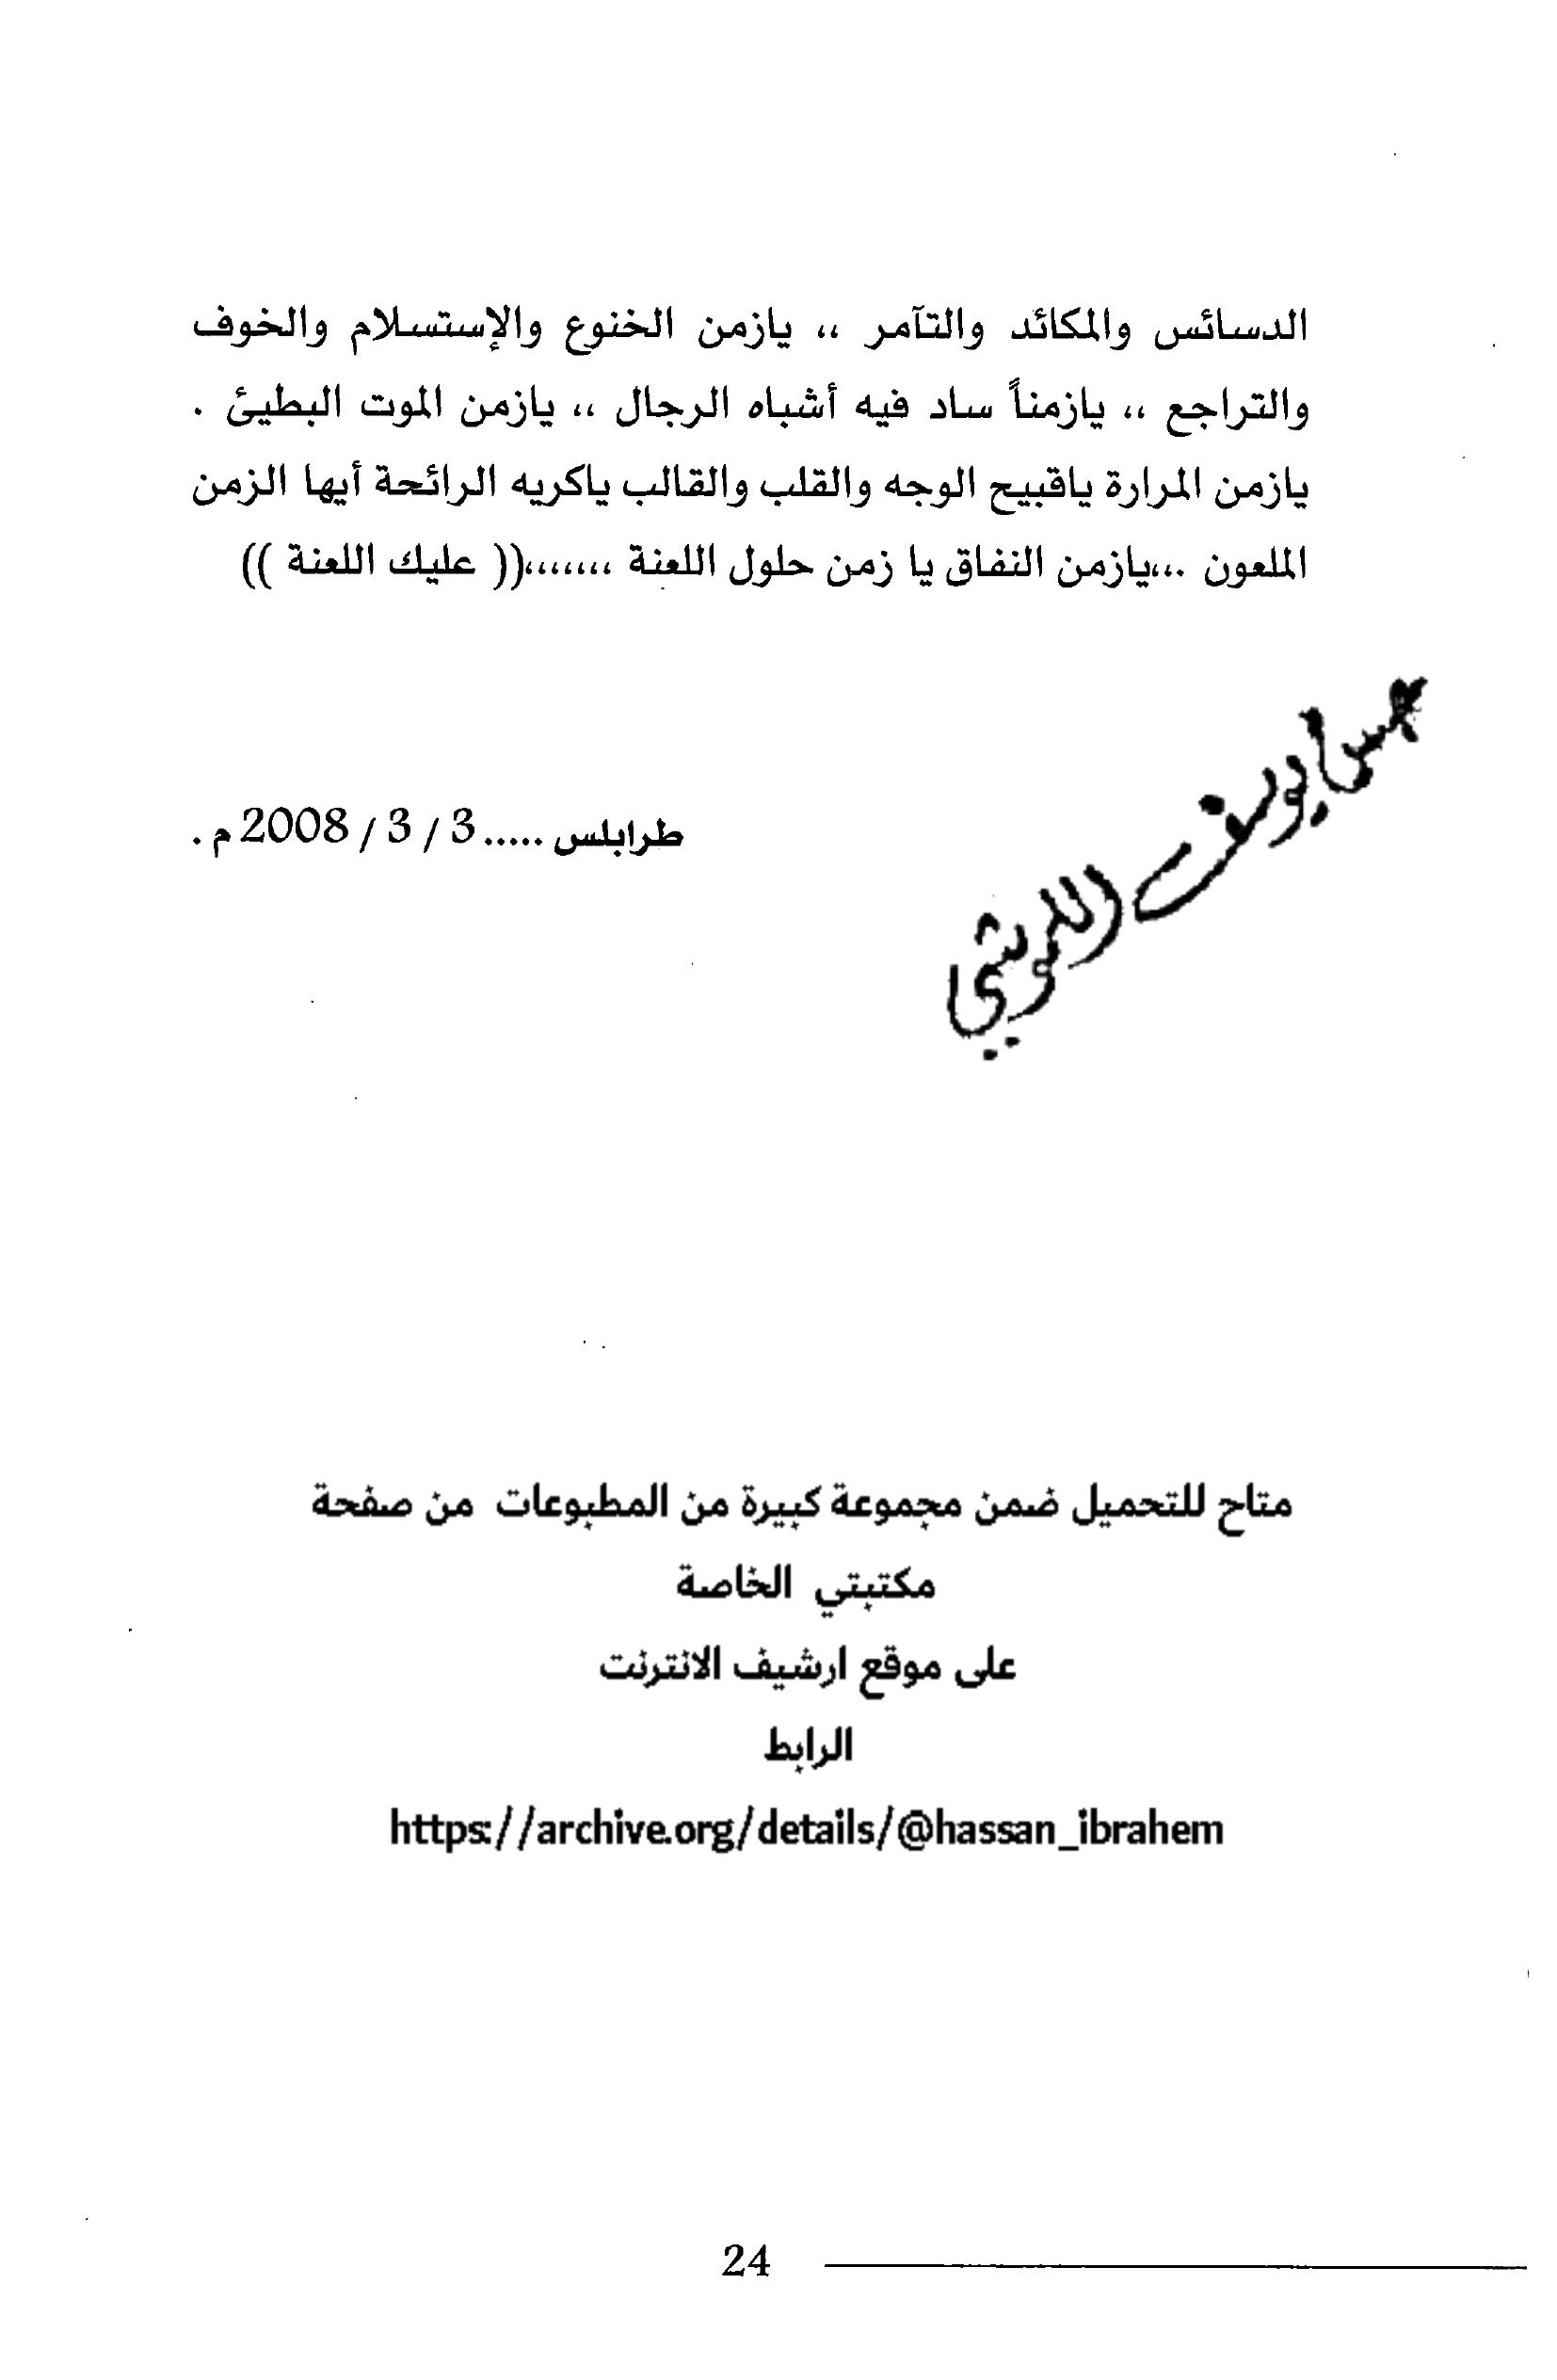 الدسائس والمكائد والتآمر ،، يازمن الخنوع والإستسلام والخوف
والتراجع ،، يازمناً ساد فيه أشباه الرجال ،، يازمن الموت البطيئ .
يازمن المرارة ياقبيح الوجه والقلب والقالب ياكريه الرائحة أيها الزمن
الملعون .،،يازمن النفاق يا زمن حلول اللعنة ،،،،،،،(( عليك اللعنة ))
يوسف
طرابلس ..... 3 / 3 / 2008 م .
متاح للتحميل ضمن مجموعة كبيرة من المطبوعات من صفحة
مكتبتي الخاصة
على موقع ارشيف الانترنت
الرابط
https://archive.org/details/@hassan_ibrahem
24